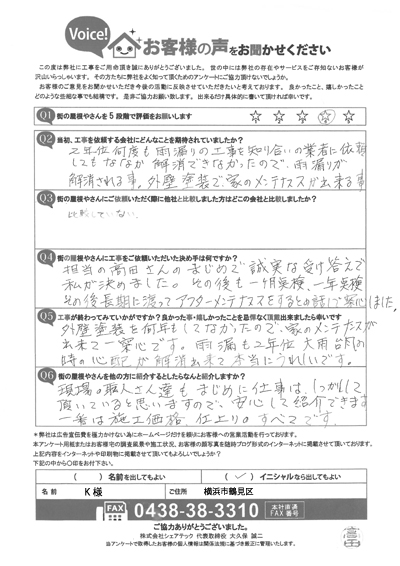 Voice!
お客様の声をお聞かせください
この度は弊社に工事をご用命頂き誠にありがとうございました。世の中には弊社の存在やサービスをご存知ないお客様が
沢山いらっしゃいます。その方たちに弊社をよく知って頂くためのアンケートにご協力頂けないでしょうか。
お客様のご意見をお聞かせいただき今後の活動に反映させていただきたいと考えております。良かったこと、嬉しかったこと
どのような些細な事でも結構です。是非ご協力お願い致します。出来るだけ具体的に書いて頂ければ幸いです。
Q1 街の屋根やさんを5段階で評価をお願いします
☆ ☆ ☆ ☆ ☆
Q2 当初、工事を依頼する会社にどんなことを期待されていましたか?
2年位何度も雨漏りの工事を知り合いの業者に依頼
してもなかなか解消できなかったので、雨漏りが
解消される事。外壁塗装で、家のメンテナスが出来る事
Q3 街の屋根やさんにご依頼いただく際に他社と比較しました方はどこの会社と比較しましたか?
比較していない
Q4 街の屋根やさんに工事をご依頼いただいた決め手は何ですか?
担当の高田さんのまじめで誠実な受け答えで
私が決めました。その後も一ヶ月点検、一年点検
その後長期に渡ってアフターメンテナスをするとの話で安心しました。
Q5 工事が終わってみていかがですか?良かった事・嬉しかったことを忌憚なく頂戴出来ましたら幸いです
外壁塗装を何年もしてなかったので、家のメンテナスが
出来て一安心です。雨漏も2年位大雨台風の
時の心配が解消出来て本当にうれしいです。
Q6 街の屋根やさんを他の方に紹介するとしたらなんと紹介しますか?
現場の職人さん達もまじめに仕事は、しっかりして
頂いていると思いますので、安心して紹介できます
一番は施工価格、仕上りのすべてです。
*弊社は広告宣伝費を極力かけない為にホームページだけを頼りにお客様への営業活動を行っております。
本アンケート用紙またはお客様宅の調査風景や施工状況、お客様の顔写真を随時ブログ形式のインターネットに掲載させて頂いております。
上記内容をインターネットや印刷物に掲載させて頂いてもよろしいでしょうか?
下記の中から〇印をお付け下さい。
( )名前を出してもよい (✓)イニシャルなら出してもよい
名前 K様 ご住所 横浜市鶴見区
FAX 0438-38-3310 本社直通 FAX番号
ご協力ありがとうございました。
株式会社シェアテック 代表取締役 大久保 誠二
当アンケートで取得したお客様の個人情報は関係法規に基づき適正に管理いたします。